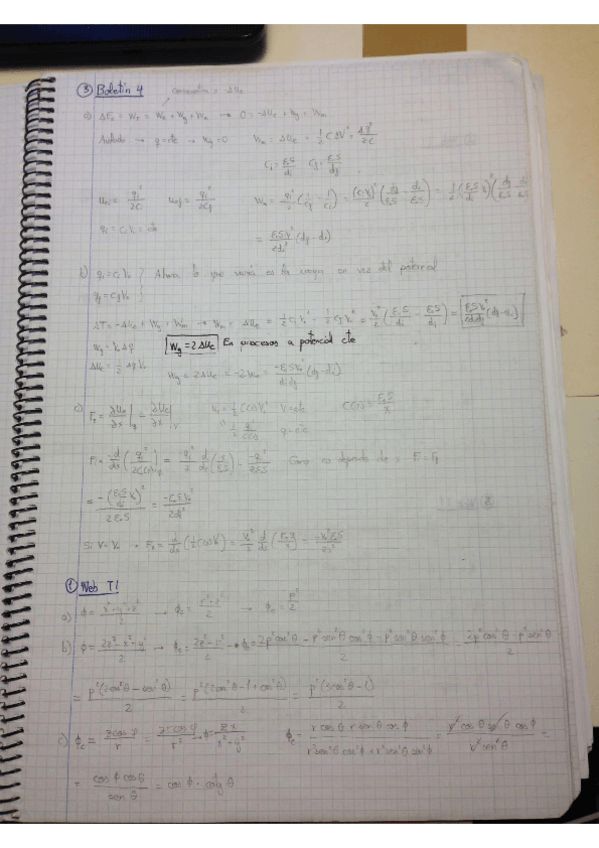 ③ Boletín 4
conservativa = -ΔUe
a) ΔEc = We = We + Wg + Wm → 0 = -ΔUe + Wg + Wm
Aislado → q=cte → Wg=0 Wm = ΔUe = 1/2 CΔV² = Δq²/2C
Ci = ε0S/di Cf = ε0S/df
Uei = qi²/2Ci Uef = qi²/2Cf Wm = qi²/2 (1/Cf - 1/Ci) = (CiV0)²/2 (df/ε0S - di/ε0S) = 1/2 (ε0S/di V0)² (df/ε0S - di/ε0S)
qi = Ci Vi = cte
= ε0SV0²/2di² (df-di)
b) qi = Ci V0 } Ahora lo que varía es la carga en vez del potencial
qf = Cf V0 }
ΔT = -ΔUe + Wg + Wm → Wm = -ΔUe = 1/2 Ci V0² - 1/2 Cf V0² = V0²/2 (ε0S/di - ε0S/df) = ε0SV0²/2didf (df-di)
Wg = V0 Δq
Wg = 2ΔUe En procesos a potencial cte
ΔUe = 1/2 Δq V0
Wg = 2ΔUe = -2Wm = -ε0SV0²/didf (df-di)
c) Fe = ∂Ue/∂x |q = ∂Ue/∂x |V Ue = 1/2 C(x)V0² V=cte C(x) = ε0S/x
1/2 q²/C(x) q=cte
F = -d/dx (qi²/2C(x))q = -qi²/2 d/dx (x/ε0S) = -qi²/2ε0S Como no depende de x Fi = Ff
= -(ε0S/di V0)²/2ε0S = -ε0SV0²/2di²
Si V=V0 → Fe = d/dx (1/2 C(x)V0²) = V0²/2 d/dx (ε0S/x) = -V0²ε0S/2x²
① Web T1
a) ϕ = x²+y²+z²/2 → ϕc = r²+z²/2 → ϕe = r²/2
b) ϕ = 2z²-x²-y²/2 → ϕc = 2z²-r²/2 → ϕe = 2r²cos²θ - r²sen²θcos²ϕ - r²sen²θsen²ϕ/2 = 2r²cos²θ - r²sen²θ/2
= r²(2cos²θ-sen²θ)/2 = r²(2cos²θ-1+cos²θ)/2 = r²(3cos²θ-1)/2
c) ϕc = z cosϕ/r = z r cosϕ/r² → ϕ = zx/x²+y² ϕe = r cosθ r senθ cosϕ/r²sen²θcos²ϕ+r²sen²θsen²ϕ = r² cosθ senθ cosϕ/r² sen²θ =
= cosϕ cosθ/senθ = cosϕ · cotgθ